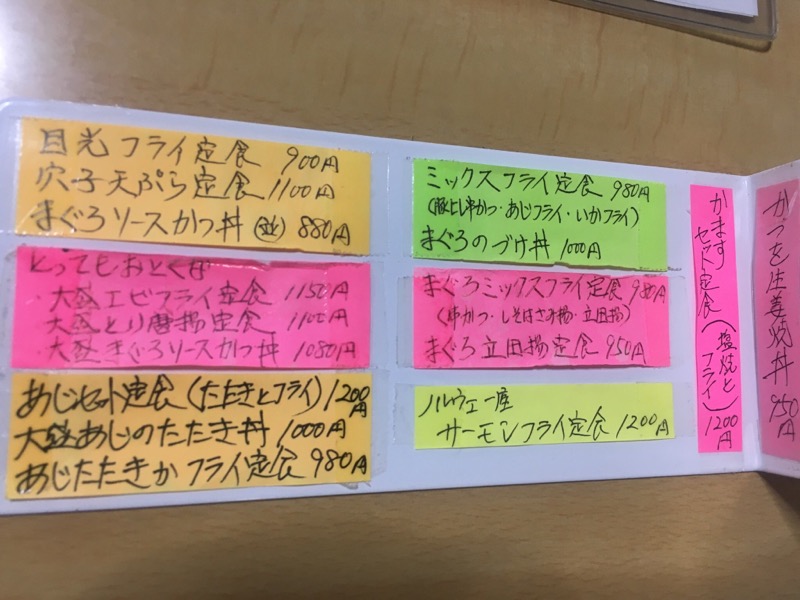 目光フライ定食 900円
穴子天ぷら定食 1100円
まぐろソースかつ丼(並) 880円
とってもおとくな
・大盛エビフライ定食 1150円
・大盛とり唐揚定食 1100円
・大盛まぐろソースかつ丼 1080円
あじセット定食(たたきとフライ)1200円
大盛あじのたたき丼 1000円
あじたたきかフライ定食 980円
ミックスフライ定食 980円
(豚ヒレ串かつ・あじフライ・いかフライ)
まぐろのづけ丼 1000円
まぐろミックスフライ定食 980円
(串かつ・しそはさみ揚・立田揚)
まぐろ立田揚定食 950円
ノルウェー産
サーモンフライ定食 1200円
かます
セット定食(塩焼とフライ)1200円
かつを生姜焼丼 950円